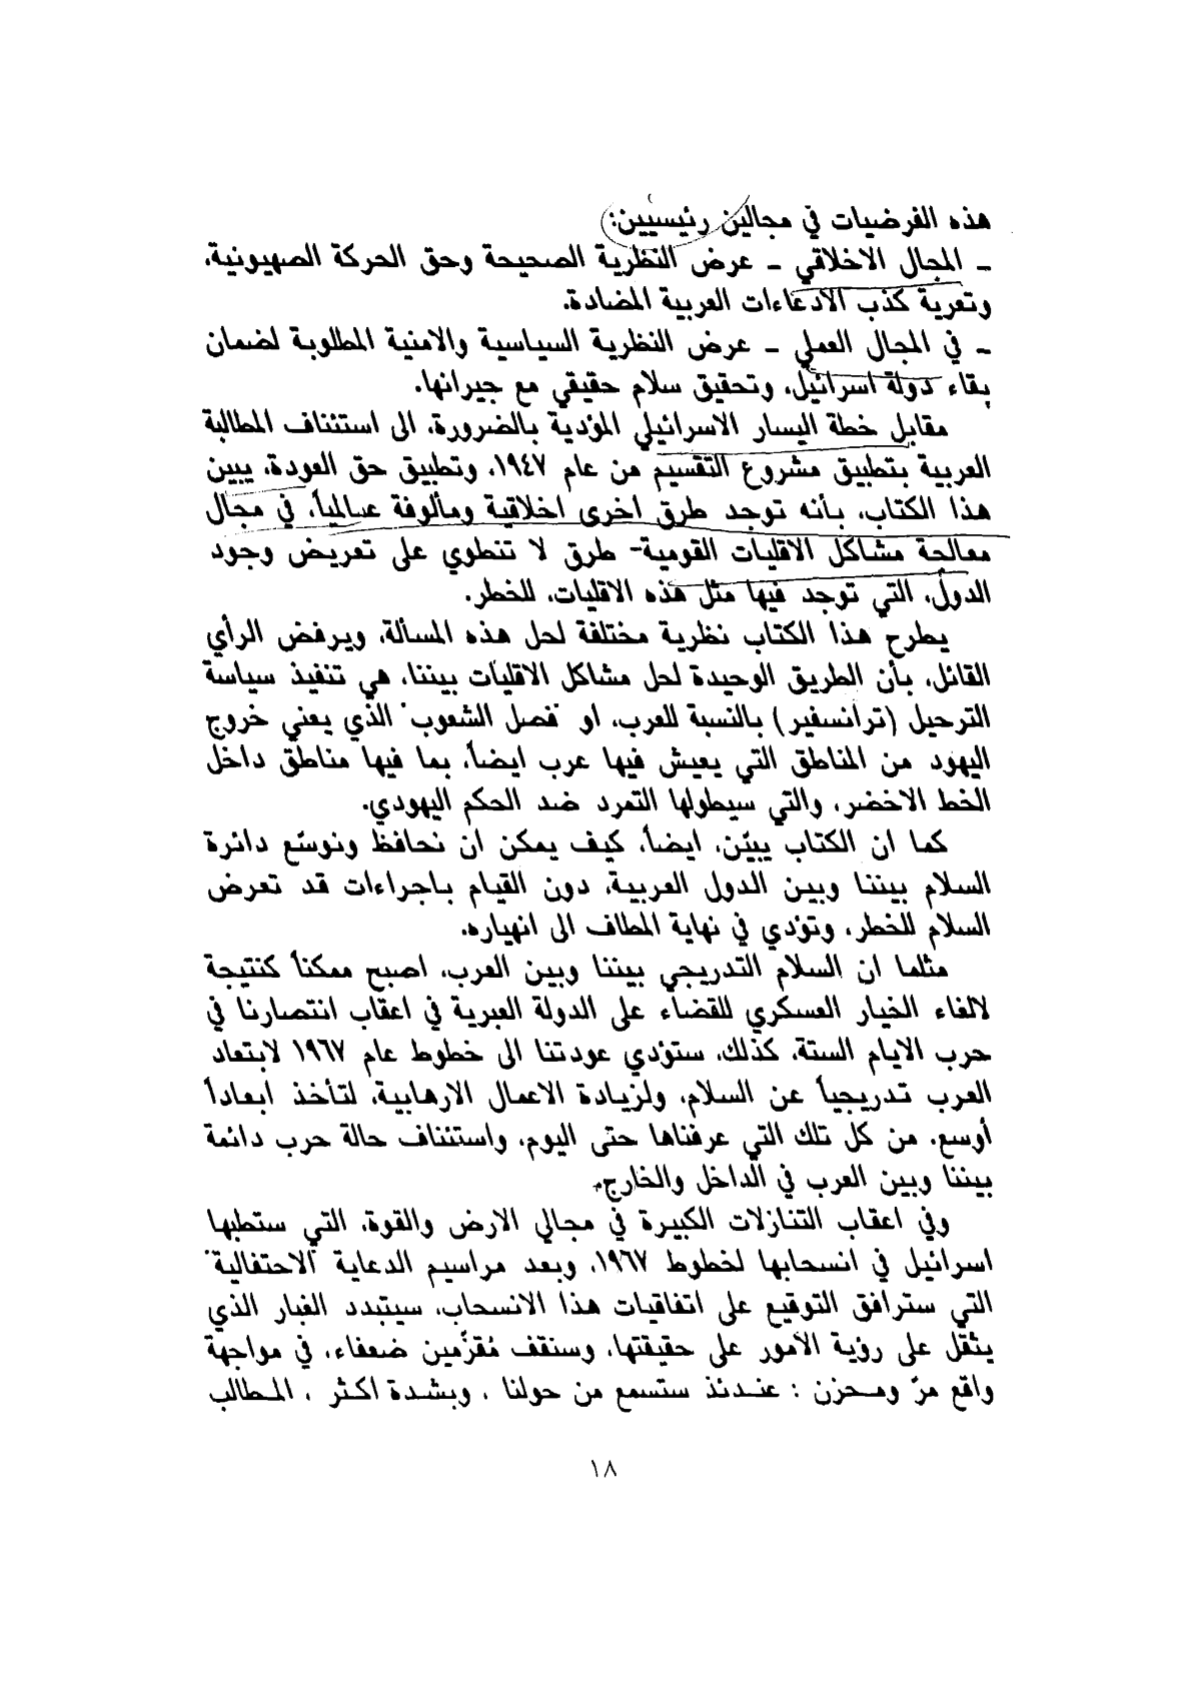 هذه الفرضيات في مجالين رئيسيين:
ـ المجال الاخلاقي ـ عرض النظرية الصحيحة وحق الحركة الصهيونية،
وتعرية كذب الادعاءات العربية المضادة.
ـ في المجال العملي ـ عرض النظرية السياسية والامنية المطلوبة لضمان
بقاء دولة اسرائيل، وتحقيق سلام حقيقي مع جيرانها.
مقابل خطة اليسار الاسرائيلي المؤدية بالضرورة، الى استئناف المطالبة
العربية بتطبيق مشروع التقسيم من عام ١٩٤٧، وتطبيق حق العودة، يبين
هذا الكتاب، بأنه توجد طرق اخرى اخلاقية ومألوفة عالمياً، في مجال
معالجة مشاكل الاقليات القومية- طرق لا تنطوي على تعريض وجود
الدول، التي توجد فيها مثل هذه الاقليات، للخطر.
يطرح هذا الكتاب نظرية مختلفة لحل هذه المسألة، ويرفض الرأي
القائل، بأن الطريق الوحيدة لحل مشاكل الاقليات بيننا، هي تنفيذ سياسة
الترحيل (ترانسفير) بالنسبة للعرب، او "فصل الشعوب" الذي يعني خروج
اليهود من المناطق التي يعيش فيها عرب ايضاً، بما فيها مناطق داخل
الخط الاخضر، والتي سيطولها التمرد ضد الحكم اليهودي.
كما ان الكتاب يبيّن، ايضاً، كيف يمكن ان نحافظ ونوسّع دائرة
السلام بيننا وبين الدول العربية، دون القيام باجراءات قد تعرض
السلام للخطر، وتؤدي في نهاية المطاف الى انهياره.
مثلما ان السلام التدريجي بيننا وبين العرب، اصبح ممكناً كنتيجة
لالغاء الخيار العسكري للقضاء على الدولة العبرية في اعقاب انتصارنا في
حرب الايام الستة، كذلك، ستؤدي عودتنا الى خطوط عام ١٩٦٧ لابتعاد
العرب تدريجياً عن السلام، ولزيادة الاعمال الارهابية، لتأخذ ابعاداً
أوسع، من كل تلك التي عرفناها حتى اليوم، واستئناف حالة حرب دائمة
بيننا وبين العرب في الداخل والخارج.
وفي اعقاب التنازلات الكبيرة في مجالي الارض والقوة، التي ستطبها
اسرائيل في انسحابها لخطوط ١٩٦٧، وبعد مراسيم الدعاية "الاحتفالية"
التي سترافق التوقيع على اتفاقيات هذا الانسحاب، سيتبدد الغبار الذي
يثقل على رؤية الأمور على حقيقتها، وسنقف مُقزّمين ضعفاء، في مواجهة
واقع مرّ ومحزن : عندئذ ستسمع من حولنا ، وبشدة اكثر ، المطالب
١٨